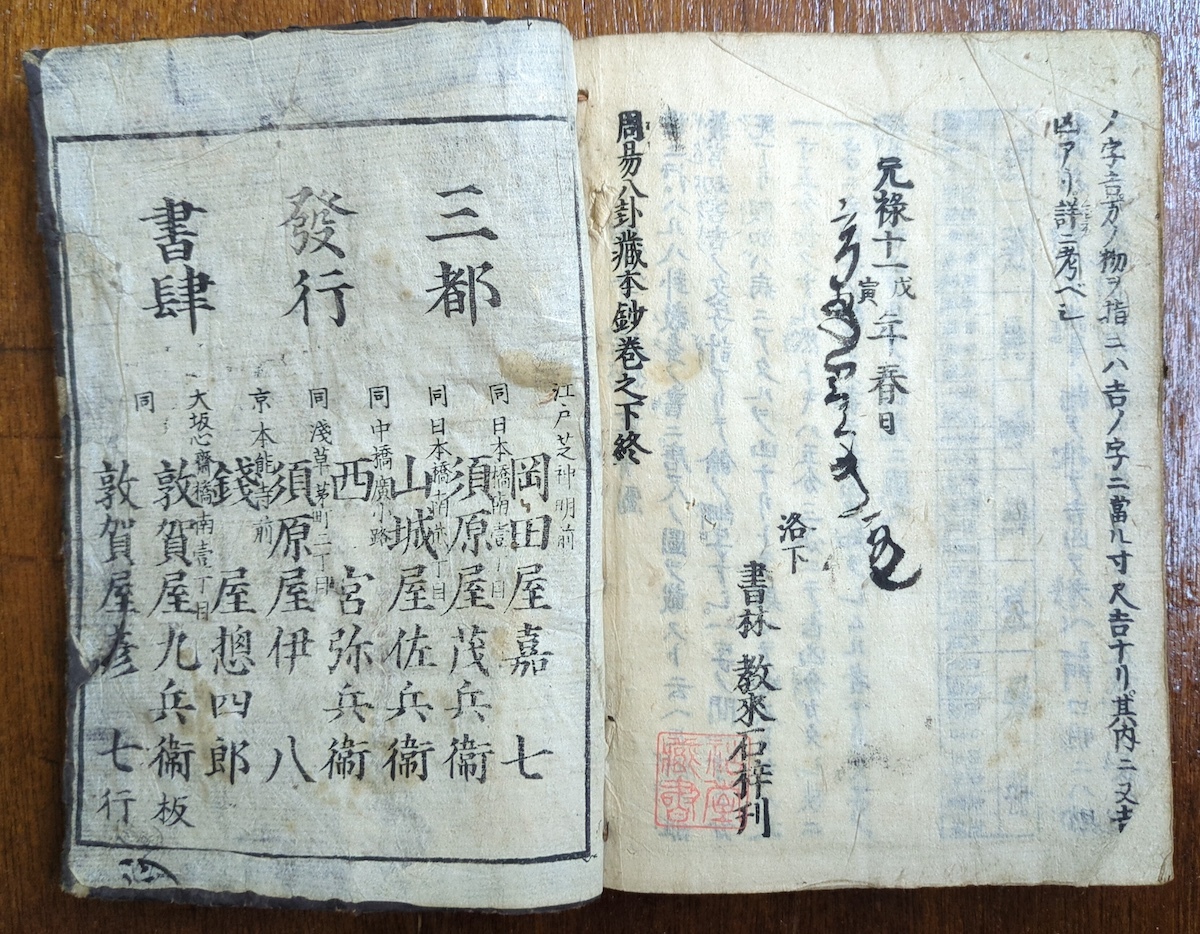 ノ字吉方ノ物ヲ指ニハ吉ノ字ニ當ル寸尺吉ナリ其内ニ又吉
凶アリ詳ニ考ベシ
元祿十一戊寅年春日
洛下
書林 教來石梓刊
周易八卦藏本鈔卷之下終
三都
發行
書肆
江戸芝神明前
岡田屋嘉七
同日本橋南壹丁目
須原屋茂兵衞
同日本橋南貳丁目
山城屋佐兵衞
同中橋廣小路
西宮弥兵衞
同淺草茅町二丁目
須原屋伊八
京本能寺前
錢屋摠四郎
大坂心齋橋南壹丁目
敦賀屋九兵衞板
同
敦賀屋彦七行